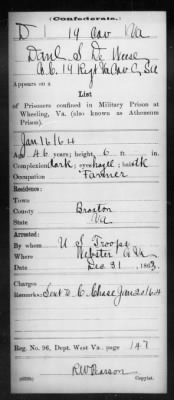 (Confederate.)
D | 19 Cav | Va
Danl S De Weese
Co. C, 19 Reg't Va Cav C.S.A
Appears on a
List
of Prisoners confined in Military Prison at
Wheeling, Va. (also known as Athenæum
Prison).
Jan 16 64
Age 46 years; height 6 ft. in.
Complexion dark; eyes hazel; hair dk
Occupation Farmer
Residence:
Town
County Braxton
State Va
Arrested:
By whom U S Troops
Where Webster Co Va
When Dec 31, 1863.
Remarks: Sent to C. Chase Jan 20 164
Reg. No. 96, Dept. West Va., page 147
R W Pearson
Copyist.